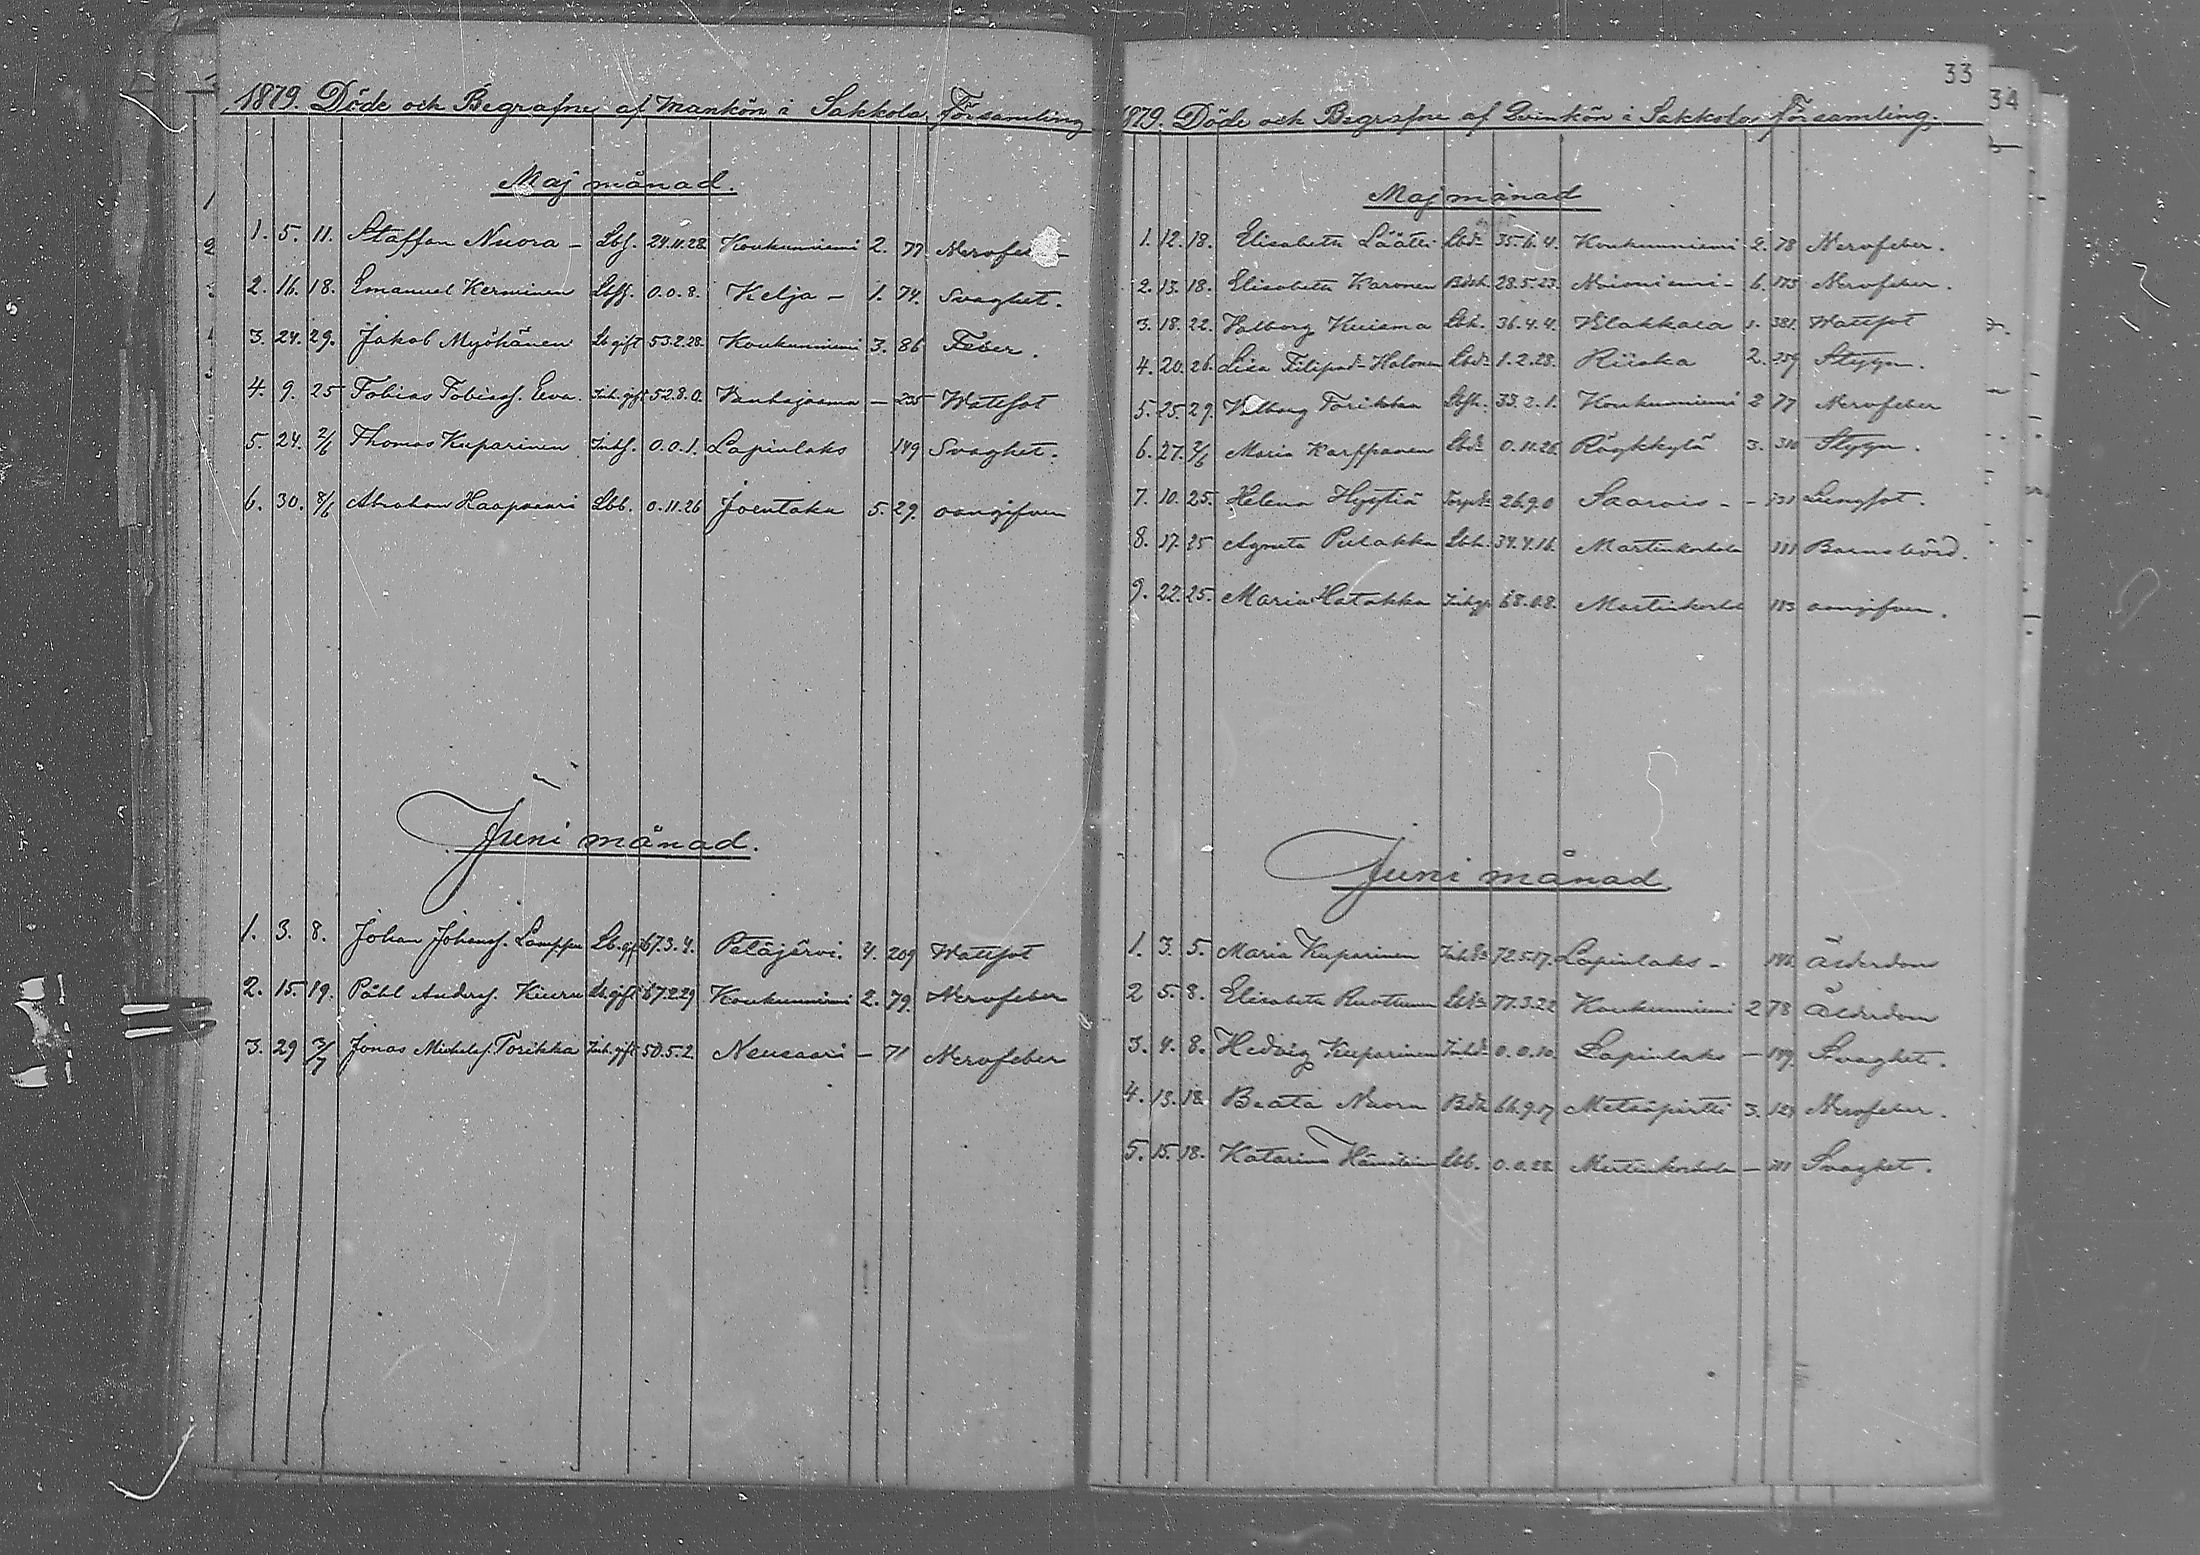 1879. Döde och Begrafne af Mankön i Sakkola Församling
Maj månad.
1. 5. 11. Staffan Nuora - Lbs. 24.11.28. Koukunniemi 2. 77
2. 16. 18. Emanuel Kerminen 0.0.8. Kelja - 1. 74. Svaghet.
3. 24. 29. Jakob Myöhänen Lb gift 53.2.28. Koukunniemi 3. 86 Feber.
4. 9. 25 Tobias Tobiass. Eva. Inh. gift 52.8.0. Vanhajaama - 235 Wattsot
5. 24. 2/6 Thomas Kuparinen Inhs. 0.0.1. Lapinlaks 149 Svaghet.
6. 30. 8/6 Abraham Haapsaari Lbb. 0.11.26 Joentaka 5. 29. oangifven
Juni månad.
1. 3. 8. Johan Johanss. Lamppu Lb. gift 67.3.4. Petäjärvi. 4. 209 Wattsot
2. 15. 19. Påhl Anderss. Kiuru Lb gift 67.2.29. Koukunniemi 2. 79. Nervfeber
3. 29 3/7 Jonas Michelss. Torikka Inh. gift 50.5.2. Neusaari - 71 Nervfeber
33
34
1879. Döde och Begrafne af Qvinkön i Sakkola Församling.
Maj månad
1. 12. 18. Elisabeth Läätti Lbde 35.6.4. Koukunniemi 2. 78 Nervfeber.
2. 13. 18. Elisabeth Karonen 28.5.23. 6. 173 Nervfeber.
3. 18. 22. Valborg Kuisma Lbh. 36.4.4. Wlakkala 1. 381. Wattsot
4. 20. 26. Lisa Filipsd. Halonen Lbde 1.2.28. Riiska 2. 259 Stygn.
5. 25. 29. Valborg Torikka 33.2.1. Koukunniemi 2 77 Nervfeber
6. 27. 2/6 Maria Karppanen Lbde 0.11.26. Röykkylä 3. 310 Stygn.
7. 10. 25. Helena Hyytiä 26.9.0 Saarois - - 131 Lungsot.
8. 17. 25 Agneta Pulakka Lbh. 34.4.16. Martinkorhola 111 Barnsbörd.
9. 22. 25. Maria Hatakka 68.0.8. Martinkorhola 113 oangifven.
Juni månad
1. 3. 5. Maria Kuparinen Inhde 72.5.17. Lapinlaks - 148. Ålderdom
2 5. 8. Elisabeth Ruottunen Lbde 77.3.22 Koukunniemi 2 78 Ålderdom
3. 4. 8. Hedvig Kuparinen Inhd. 0.0.10. Lapinlaks - 149. Svaghet.
4. 13. 18. Beata Nuora 66.9.17 Metsäpirtti 3. 129 Nervfeber.
5. 15. 18. Katarina Hämäläinen Lbb. 0.0.28. Martinkorhola - 111 Svaghet.